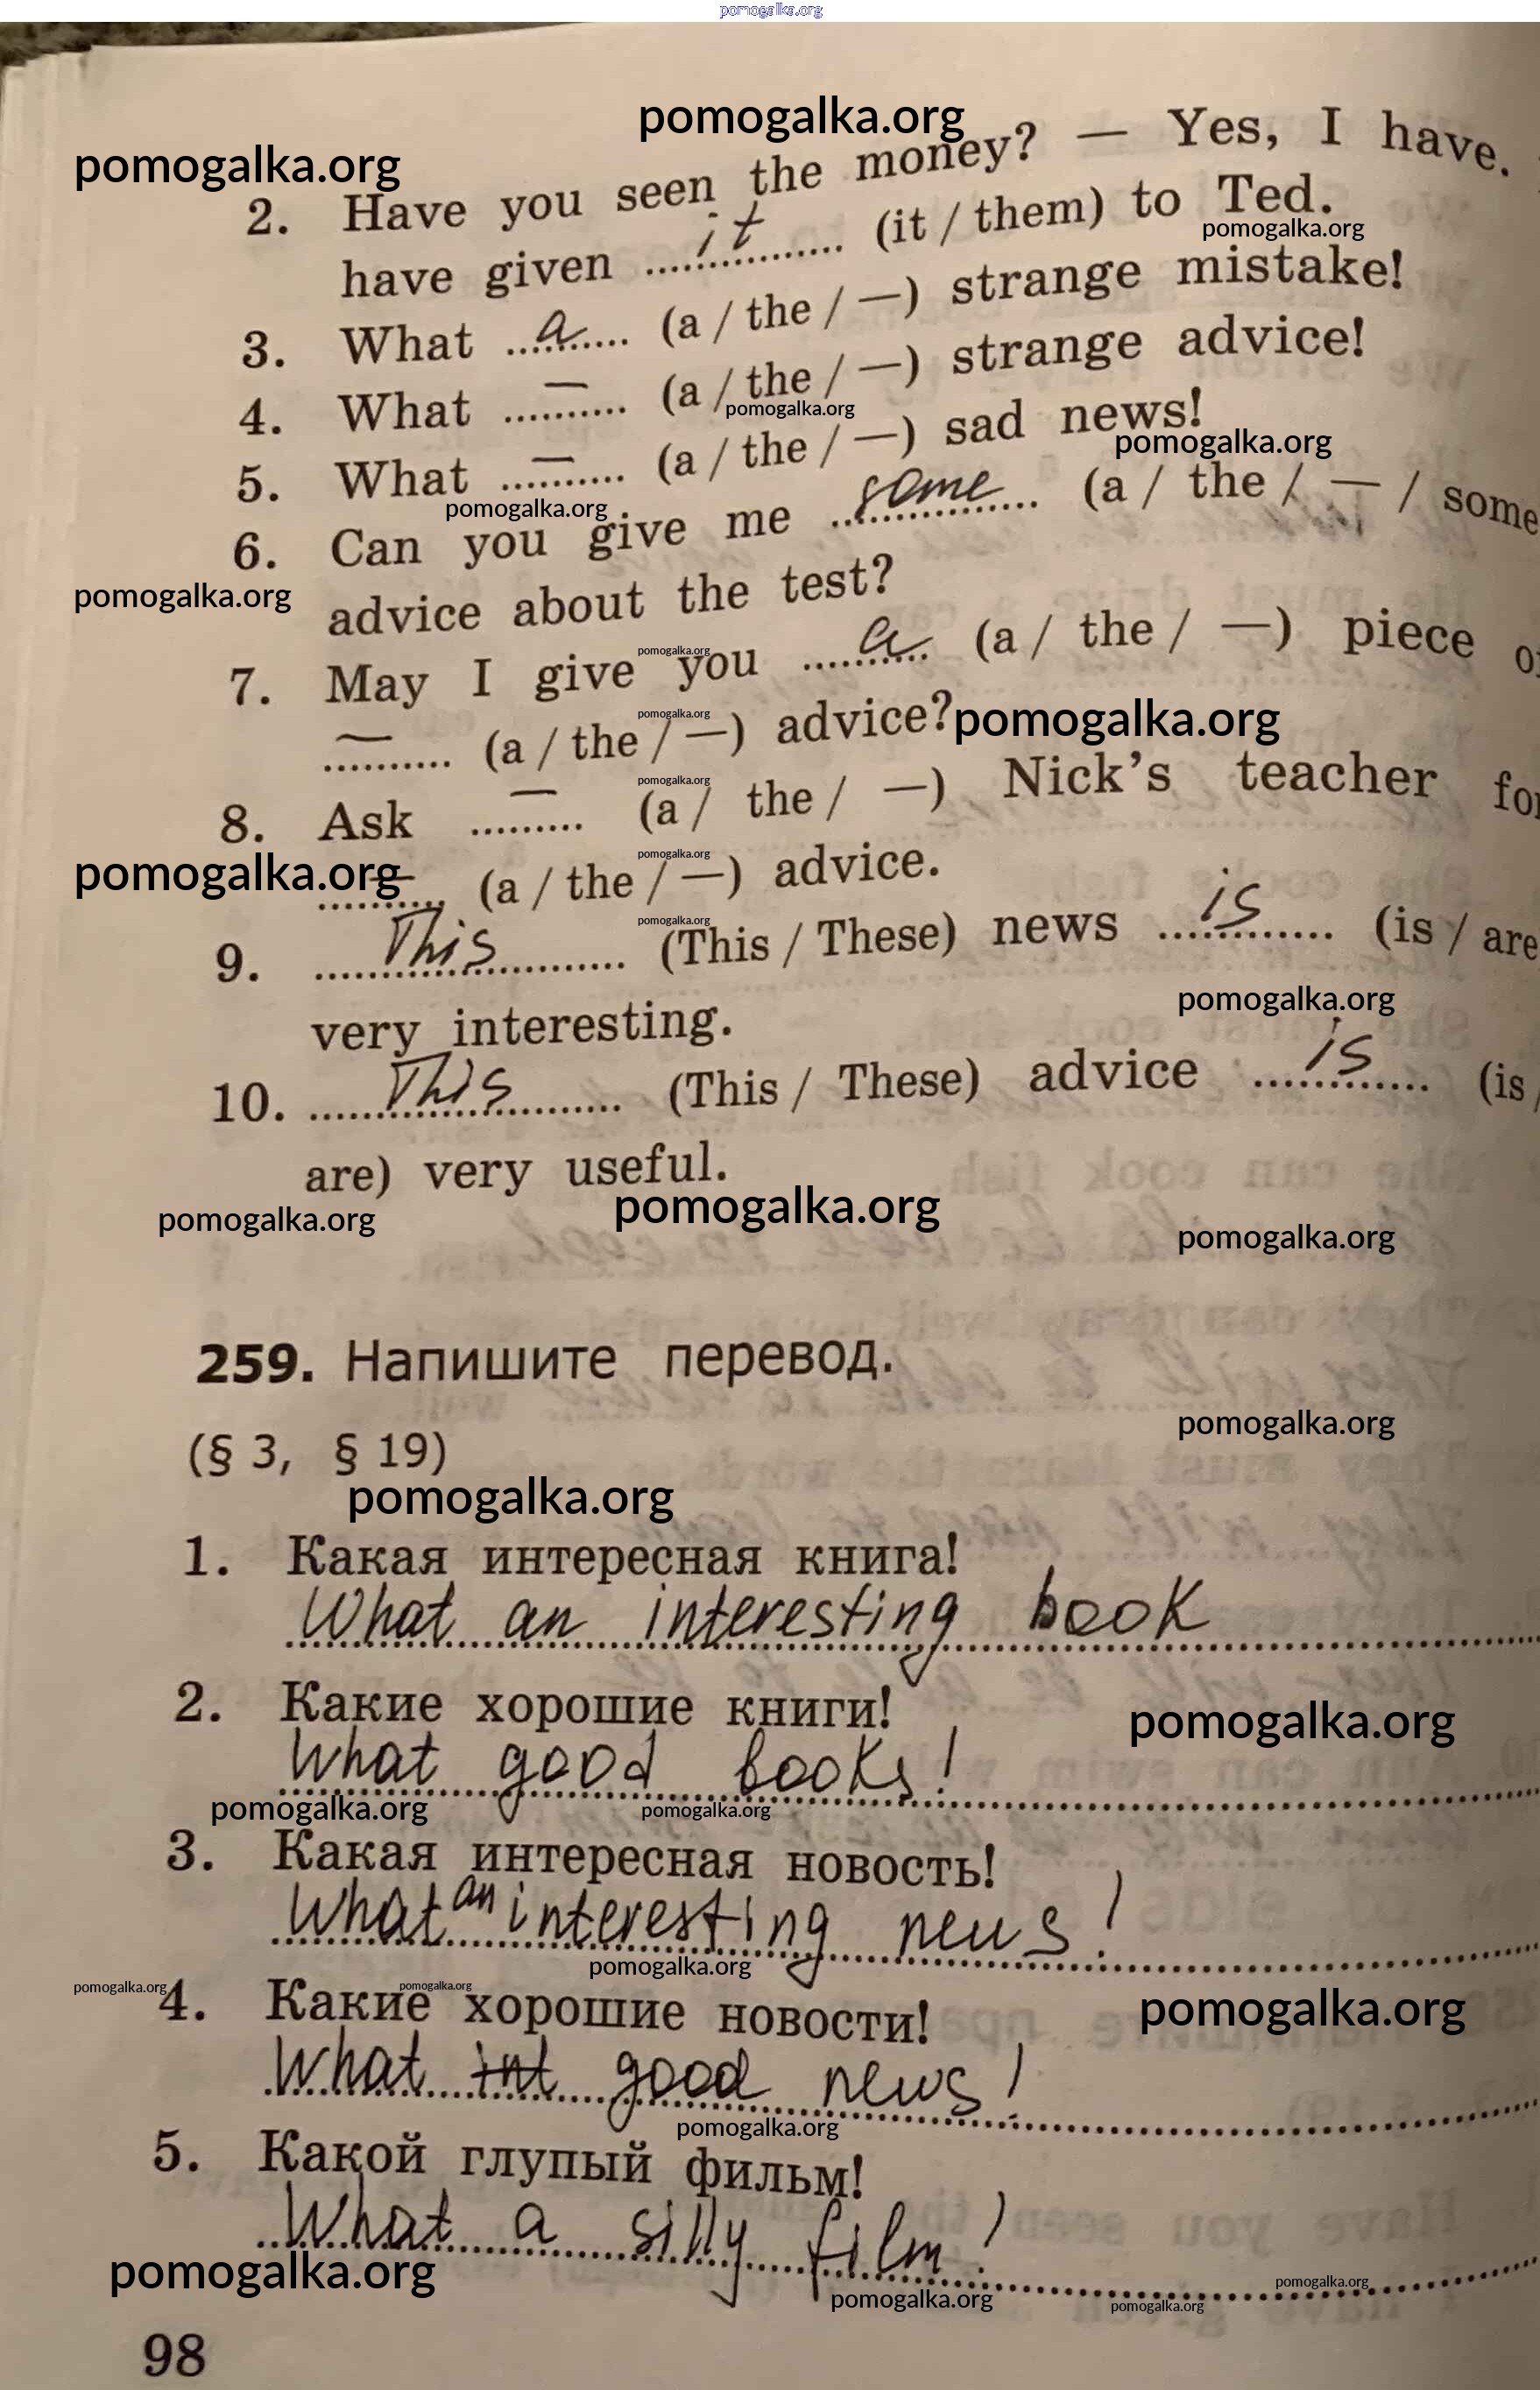 pomogalka.org
pomogalka.org
pomogalka.org
2. Have you seen the money? — Yes, I have.
have given it (it / them) to Ted.
pomogalka.org
3. What a (a / the / —) strange mistake!
4. What — (a / the / —) strange advice!
pomogalka.org
5. What — (a / the / —) sad news!
pomogalka.org
pomogalka.org
6. Can you give me some (a / the / — / some
advice about the test?
pomogalka.org
pomogalka.org
7. May I give you a (a / the / —) piece
pomogalka.org
— (a / the / —) advice?
pomogalka.org
pomogalka.org
8. Ask — (a / the / —) Nick's teacher for
pomogalka.org
pomogalka.org
— (a / the / —) advice.
pomogalka.org
9. This (This / These) news is (is / are
very interesting.
pomogalka.org
10. This (This / These) advice is (is /
are) very useful.
pomogalka.org
pomogalka.org
pomogalka.org
259. Напишите перевод.
pomogalka.org
(§ 3, § 19)
pomogalka.org
1. Какая интересная книга!
What an interesting book
2. Какие хорошие книги!
pomogalka.org
What good books!
pomogalka.org
pomogalka.org
3. Какая интересная новость!
What an interesting news!
pomogalka.org
pomogalka.org
pomogalka.org
4. Какие хорошие новости!
pomogalka.org
What int good news!
pomogalka.org
5. Какой глупый фильм!
What a silly film!
pomogalka.org
pomogalka.org
pomogalka.org
pomogalka.org
98